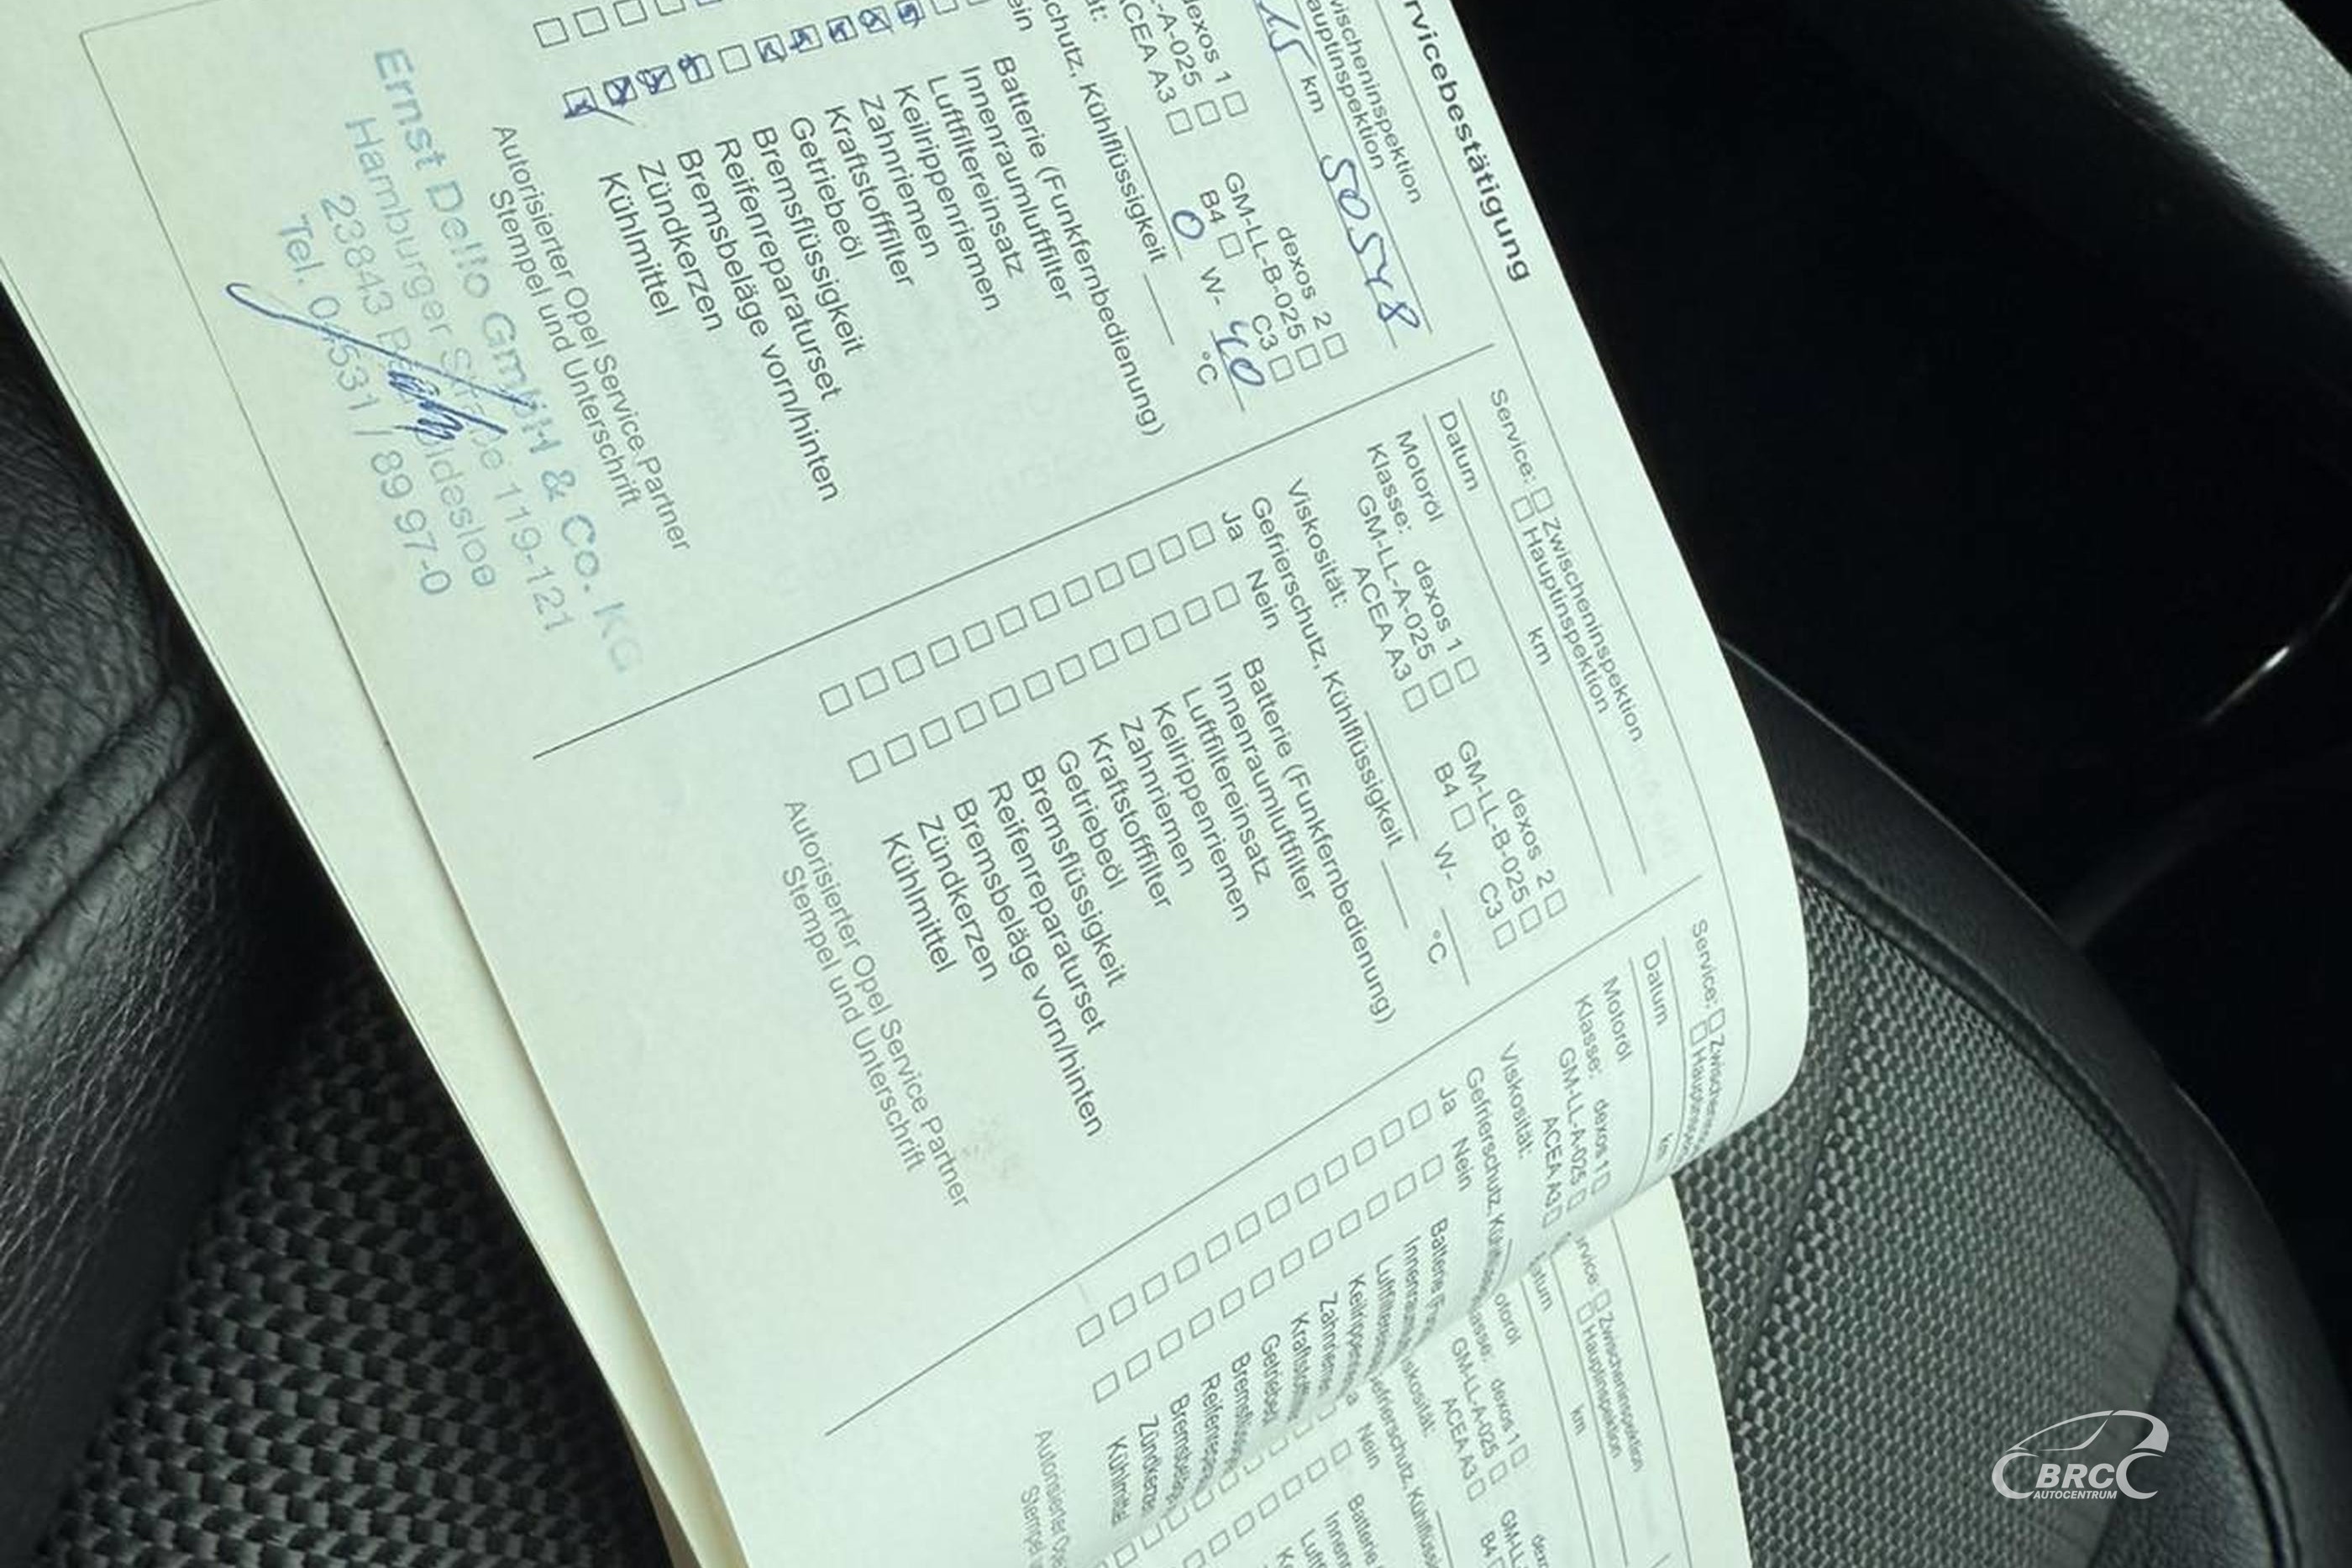 rvicebestätigung
wischeninspektion
auptinspektion
15 km 50548
dexos 1 dexos 2
-A-025 GM-LL-B-025
ACEA A3 B4 C3
ät: 0 W- 40
schutz, Kühlflüssigkeit °C
ein
Batterie (Funkfernbedienung)
Innenraumluftfilter
Luftfiltereinsatz
Keilrippenriemen
Zahnriemen
Kraftstofffilter
Getriebeöl
Bremsflüssigkeit
Reifenreparaturset
Bremsbeläge vorn/hinten
Zündkerzen
Kühlmittel
Autorisierter Opel Service Partner
Stempel und Unterschrift
Ernst Dello GmbH & Co. KG
Hamburger Straße 119-121
23843 Bad Oldesloe
Tel. 04531 / 89 97-0
Service: Zwischeninspektion
Hauptinspektion
Datum km
Motoröl
Klasse: dexos 1 dexos 2
GM-LL-A-025 GM-LL-B-025
ACEA A3 B4 C3
Viskosität: W-
Gefrierschutz, Kühlflüssigkeit °C
Ja Nein
Batterie (Funkfernbedienung)
Innenraumluftfilter
Luftfiltereinsatz
Keilrippenriemen
Zahnriemen
Kraftstofffilter
Getriebeöl
Bremsflüssigkeit
Reifenreparaturset
Bremsbeläge vorn/hinten
Zündkerzen
Kühlmittel
Autorisierter Opel Service Partner
Stempel und Unterschrift
Service: Zwischen
Hauptins
Datum km
Motoröl
Klasse: dexos 1
GM-LL-A-025
ACEA A3
Viskosität:
Gefrierschutz, Kühl
Ja Nein
Batterie
Innenrau
Luftfilter
Keilrippen
Zahnrie
Kraftsto
Getriebeö
Bremsflü
Reifenrep
Bremsbelä
Zündkerze
Kühlmittel
Autorisierter Op
Stempel
rvice Zwischeninspektion
Hauptinspektion
atum km
otoröl
lasse: dexos 1
GM-LL-A-025 GM-L
ACEA A3 B4
skosität:
efrierschutz, Kühlflüss
a Nein
Batterie
Innen
Luft
BRC
AUTOCENTRUM